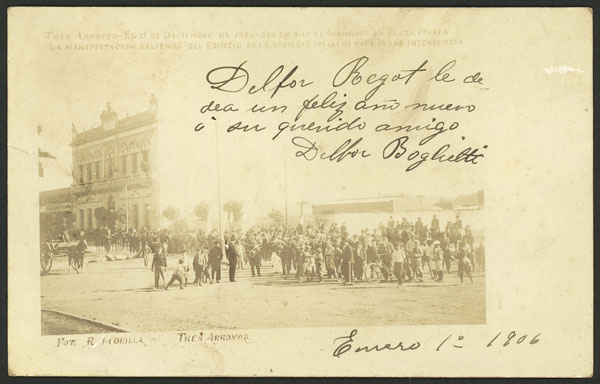 TRES ARROYOS - EL 11 DE DICIEMBRE DE DIA EN QUE SE INAUGURO LA PLAZA ITALIA
LA MANIFESTACION SALIENDO DEL EDIFICIO DE LA SOCIEDAD ITALIANA PARA LA INTENDENCIA
Delfor Regot le de
dea un feliz año nuevo
ó su querido amigo
Delfor Boglietti
FOT. R. TRES ARROYOS
Enero 1º 1906